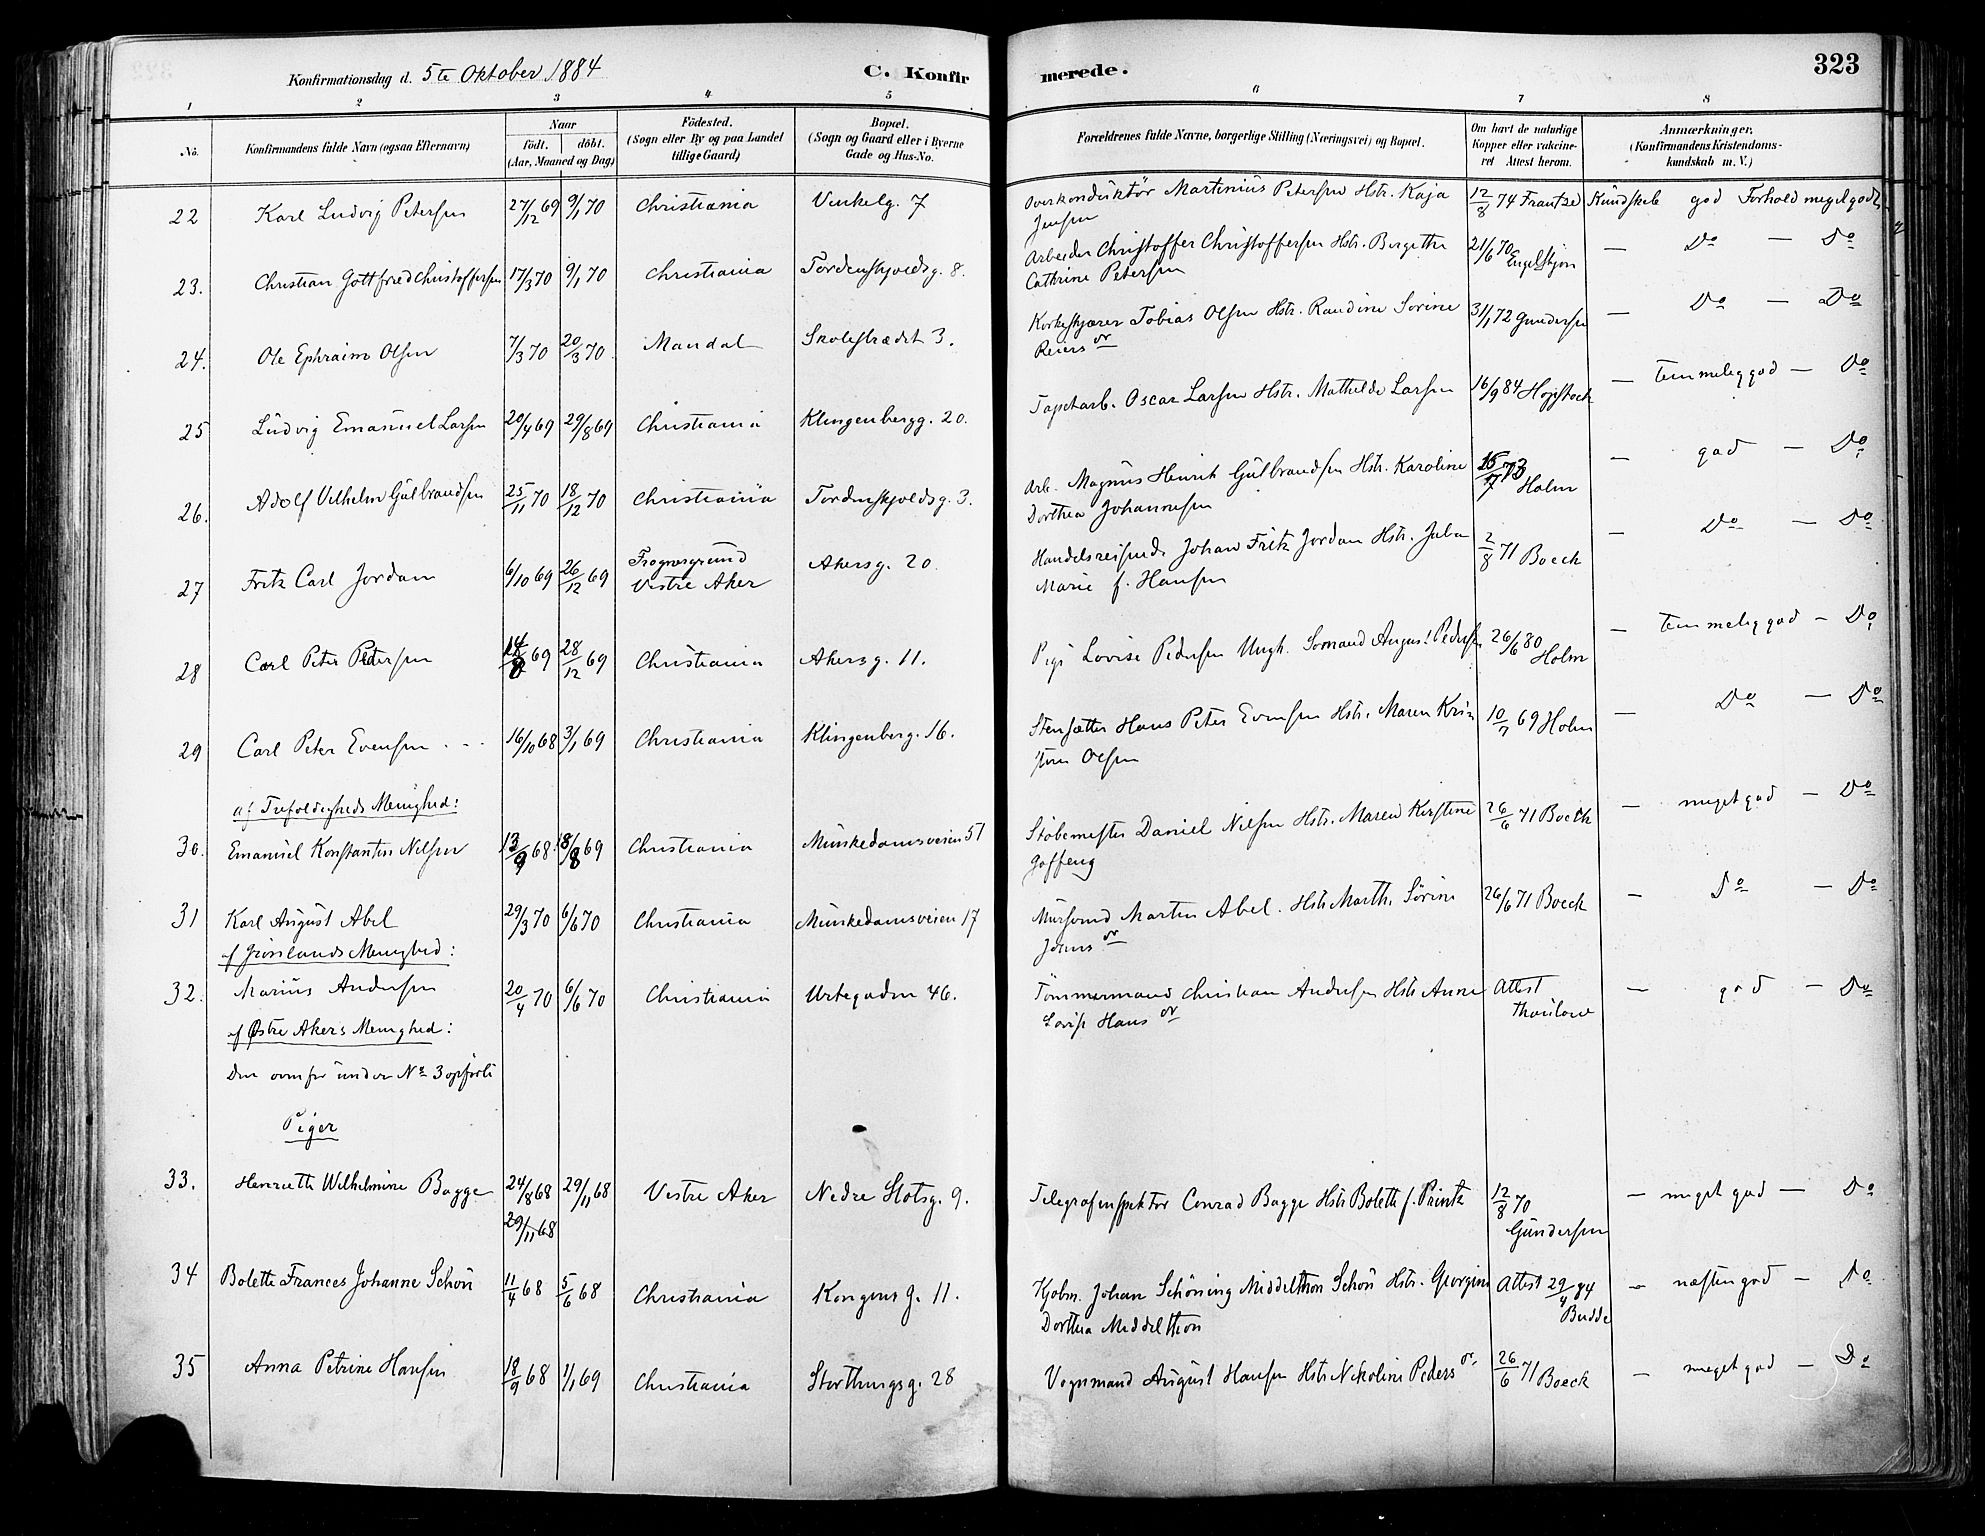 Konfirmationsdag d. 5te Oktober 1884
C. Konfirmerede.
323
1 2 3 4 5 6 7 8
No.
Konfirmandens fulde Navn (ogsaa Efternavn)
Naar
födt. döbt.
(Aar, Maaned og Dag)
Födested.
(Sogn eller By og paa Landet
tillige Gaard)
Bopæl.
(Sogn og Gaard eller i Byerne
Gade og Hus-No.
Forældrenes fulde Navne, borgerlige Stilling (Næringsvei) og Bopæl.
Om havt de naturlige
Kopper eller vakcine-
ret Attest herom.
Anmærkninger.
(Konfirmandens Kristendoms-
kundskab m. V.)
22 Karl Ludvig Petersen 27/12 69 9/1 70 Christiania Vinkelg. 7 Overkonduktör Martinius Petersen Hstr. Kaja 12/8 74 Frantze Kundskab god Forhold meget godt
Jensen
23. Christian Gottfried Christoffersen 17/3 70 9/1 70 Christiania Tordenskjoldsg. 8. Arbeider Christoffer Christoffersen Hstr. Bergethe 21/6 70 Engelskjøn — Do — Do
Cathrine Petersen
24. Ole Ephraim Olsen 7/3 70 20/3 70 Mandal Skolestrædet 3. Korkeskjærer Tobias Olsen Hstr. Randine Sorine 31/1 72 Gundersen — Do — Do
Reiers dr
25 Ludvig Emanuel Larsen 20/4 69 29/8 69 Christiania Klingenbergg. 20. Tapetarb. Oscar Larsen Hstr. Mathilde Larsen 16/9 84 Högstock — temmelig god — Do
26. Adolf Vilhelm Gulbrandsen 25/11 70 18/12 70 Christiania Tordenskjoldsg. 3. Arb. Magnus Henrik Gulbrandsen Hstr. Karoline 15/7 73 Holm — god — Do
Dorthea Johannesen
27 Fritz Carl Jordan 6/10 69 26/12 69 Frognergrund Vestre Aker Akersg. 20 Handelsreisende Johan Fritz Jordan Hstr. Julia 2/8 71 Boeck — Do — Do
Marie f. Hansen
28 Carl Peter Pedersen 14/8 69 28/12 69 Christiania Akersg. 11. Pige Lovise Pedersen Ungk. Sömand August Pedersen 26/6 80 Holm — temmelig god — Do
29 Carl Peter Evensen 16/10 68 3/1 69 Christiania Klingenberg. 16. Stensætter Hans Peter Evensen Hstr. Maren Kris 10/7 69 Holm — Do — Do
tine Olsen
af Trefoldigheds Menighed:
30. Emanuel Konstantin Nilsen 13/9 68 18/8 69 Christiania Munkedamsveien 51 Støbemester Daniel Nilsen Hstr. Maren Kirstine 26/6 71 Boeck — meget god — Do
Goffeng
31 Karl August Abel 29/3 70 6/6 70 Christiania Munkedamsveien 17 Mursvend Martin Abel. Hstr. Marth. Sørine 26/6 71 Boeck — Do — Do
Jdr
af Grønlands Menighed:
32. Marius Andersen 20/4 70 6/6 70 Christiania Urtegaden 46. Tömmermand Christian Andersen Hstr Anne Attest Thaulow — god — Do
Lovise Hans dr
af Østre Akers Menighed:
Den ovenfor under No 3 opførte
Piger
33. Henriette Wilhelmine Bagge 24/8 68 29/11 68 Vestre Aker Nedre Slotsg. 9. Telegrafinspektør Conrad Bagge Hstr Bolette f. Printz 12/8 70 Gundersen — meget god — Do
29/11 68
34 Bolette Frances Johanne Schön 11/4 68 5/6 68 Christiania Kongens G. 11. Kjøbm. Johan Schöning Middelthon Schön Hstr. Georgine Attest 29/4 84 Budde — næsten god — Do
Dorthea Middelthon
35 Anna Petrine Hansen 18/9 68 1/1 69 Christiania Storthingsg. 28 Vognmand August Hansen Hstr Nikoline Peders dr 26/6 71 Boeck — meget god — Do